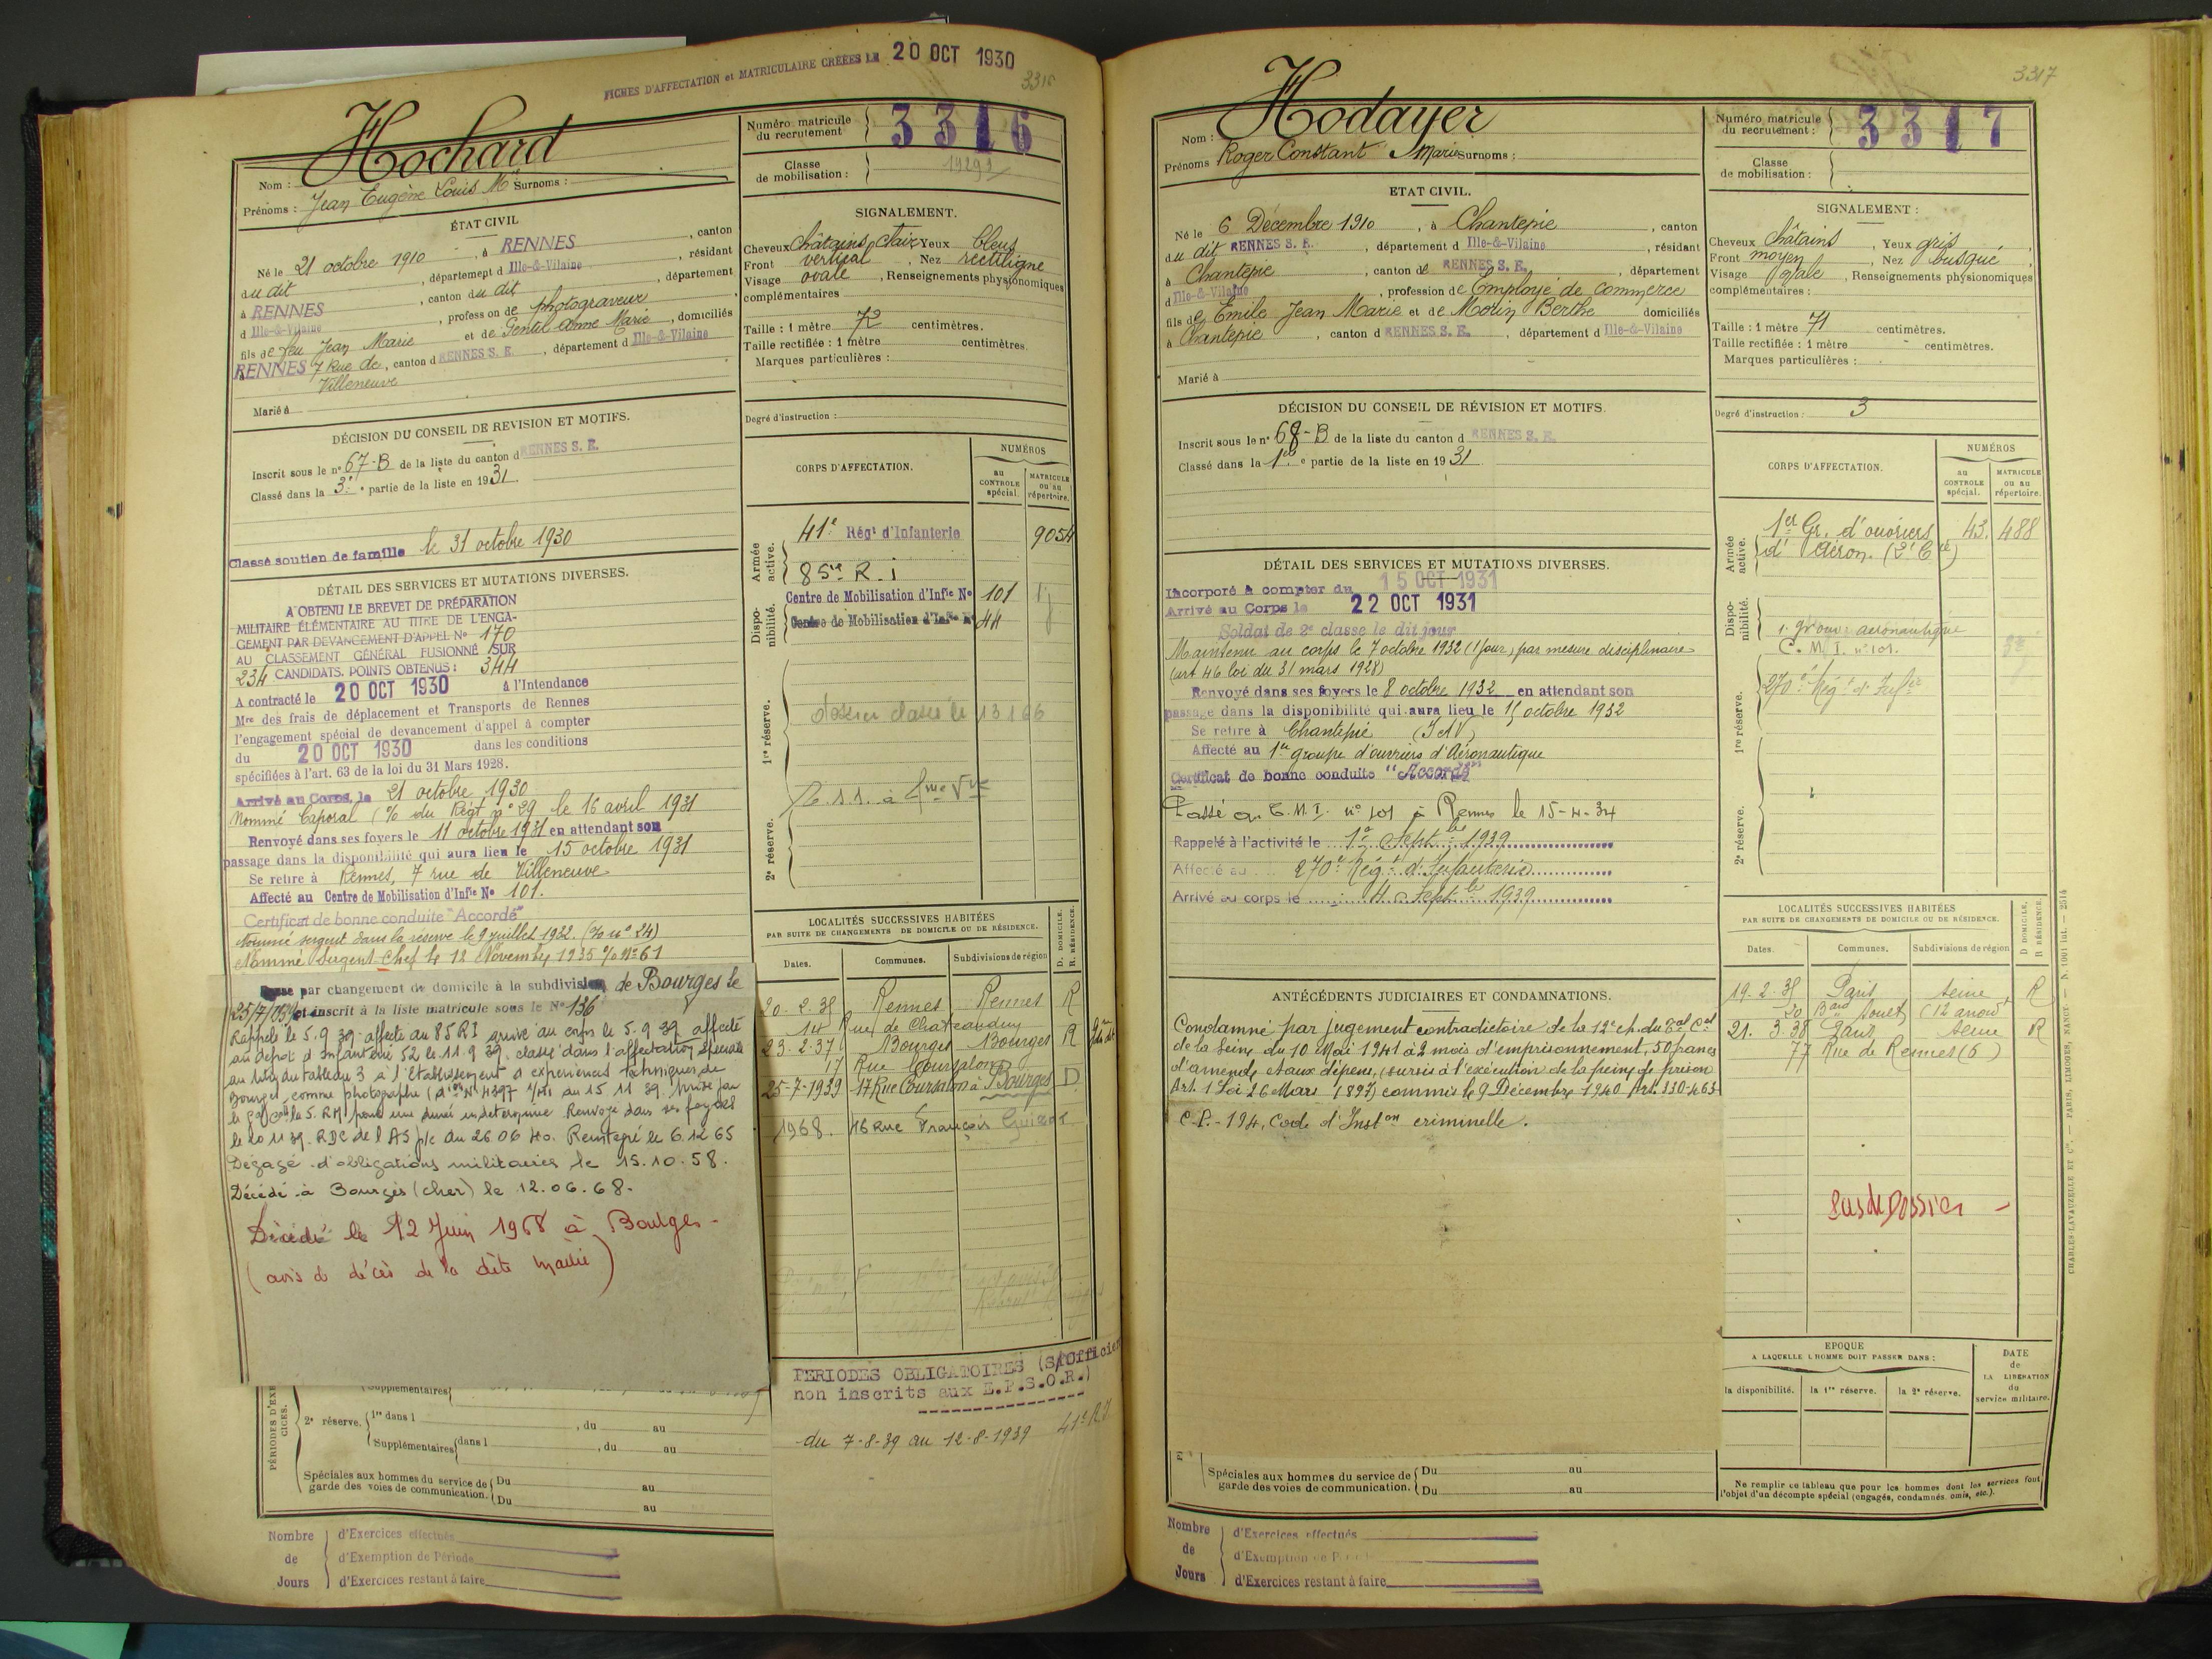 FICHES D'AFFECTATION et MATRICULAIRE CRÉÉES LE 20 OCT 1930
Nom : Hochard
Prénoms : Jean Eugène Louis Mie Surnoms :
ÉTAT CIVIL
Né le 21 octobre 1910, à RENNES, canton
du dit, département d Ille-&-Vilaine, résidant
à RENNES, canton du dit, département
d Ille-&-Vilaine, profession de photograveur
fils de feu Jean Marie et de Gentil Anne Marie, domiciliés
à RENNES 7 Rue de, canton d RENNES S. E., département d Ille-&-Vilaine
Villeneuve
Marié à
DÉCISION DU CONSEIL DE REVISION ET MOTIFS.
Inscrit sous le n° 67-B de la liste du canton d RENNES S. E.
Classé dans la 3e partie de la liste en 1931.
Classé soutien de famille le 31 octobre 1930
DÉTAIL DES SERVICES ET MUTATIONS DIVERSES.
A OBTENU LE BREVET DE PRÉPARATION
MILITAIRE ÉLÉMENTAIRE AU TITRE DE L'ENGA-
GEMENT PAR DEVANCEMENT D'APPEL N° 170
AU CLASSEMENT GÉNÉRAL FUSIONNÉ SUR
234 CANDIDATS. POINTS OBTENUS : 344
A contracté le 20 OCT 1930 à l'Intendance
Mre des frais de déplacement et Transports de Rennes
l'engagement spécial de devancement d'appel à compter
du 20 OCT 1930 dans les conditions
spécifiées à l'art. 63 de la loi du 31 Mars 1928.
Arrivé au Corps le 21 octobre 1930
Nommé Caporal (% du Régt n° 29 le 16 avril 1931
Renvoyé dans ses foyers le 11 octobre 1931 en attendant son
passage dans la disponibilité qui aura lieu le 15 octobre 1931
Se retire à Rennes, 7 rue de Villeneuve
Affecté au Centre de Mobilisation d'Infie N° 101.
Certificat de bonne conduite "Accordé"
Nommé sergent dans la réserve le 9 juillet 1932. (% n° 24)
Nommé Sergent Chef le 12 Novembre 1935 % N° 61
Passé par changement de domicile à la subdivision de Bourges le
25/7/1939 et inscrit à la liste matricule sous le N° 136
Rappelé le 5.9.39 affecté au 85 RI arrivé au corps le 5.9.39 affecté
au dépôt d'infanterie 52 le 11.9.39. classé dans l'affectation spéciale
au titre du tableau 3 à l'Etablissement d'expériences techniques de
Bourges comme photographe
pour une durée indéterminée Renvoyé dans ses foyers
le 20 11 39. RDC de l'AS p/c du 26 06 40. Réintégré le 6.12 65
Dégagé d'obligations militaires le 15.10.58.
Décédé à Bourges (cher) le 12.06.68.
Décédé le 12 Juin 1968 à Bourges -
(avis de décès de la dite mairie)
PÉRIODES D'EXERCICES.
Supplémentaires
2e réserve. 1re dans l , du au
Supplémentaires dans l , du au
Spéciales aux hommes du service de garde des voies de communication. Du au
Du au
Nombre de Jours
d'Exercices effectués
d'Exemption de Période
d'Exercices restant à faire
3316
Numéro matricule du recrutement 3316
Classe de mobilisation : 1929
SIGNALEMENT.
Cheveux châtains clair Yeux bleus
Front vertical, Nez rectiligne
Visage ovale, Renseignements physionomiques
complémentaires
Taille : 1 mètre 72 centimètres.
Taille rectifiée : 1 mètre centimètres.
Marques particulières :
Degré d'instruction :
CORPS D'AFFECTATION.
NUMÉROS
au CONTROLE spécial.
MATRICULE ou au répertoire.
Armée active.
41e Régt d'Infanterie 9054
85me R.I
Disponibilité.
Centre de Mobilisation d'Infie N° 101
Centre de Mobilisation d'Infie N° 44
1re réserve.
dossier classé le 13 1 66
2e réserve.
LOCALITÉS SUCCESSIVES HABITÉES
PAR SUITE DE CHANGEMENTS DE DOMICILE OU DE RÉSIDENCE.
Dates. Communes. Subdivisions de région D. DOMICILE. R. RÉSIDENCE.
20.2.35 Rennes Rennes R
14 Rue de Chateaudun
23.2.37 Bourges Bourges R
17 Rue Coursalon
25-7-1939 17 Rue Coursalon à Bourges D
1968. 46 Rue François Guizot
PERIODES OBLIGATOIRES (S/Officiers
non inscrits aux E.P.S.O.R.)
-du 7-8-39 au 12-8-1939 41e RI
3317
Nom : Hodayer
Prénoms Roger Constant Marie Surnoms :
ETAT CIVIL.
Né le 6 Décembre 1910, à Chantepie, canton
du dit RENNES S. E., département d Ille-&-Vilaine, résidant
à Chantepie, canton de RENNES S. E., département
d Ille-&-Vilaine, profession de Employé de commerce
fils de Emile Jean Marie et de Morin Berthe domiciliés
à Chantepie, canton d RENNES S. E., département d Ille-&-Vilaine
Marié à
DÉCISION DU CONSEIL DE RÉVISION ET MOTIFS.
Inscrit sous le n° 68-B de la liste du canton d RENNES S. E.
Classé dans la 1re partie de la liste en 1931.
DÉTAIL DES SERVICES ET MUTATIONS DIVERSES.
Incorporé à compter du 15 OCT 1931
Arrivé au Corps le 22 OCT 1931
Soldat de 2e classe le dit jour
Maintenu au corps le 7 octobre 1932 (1 jour) par mesure disciplinaire
(art 46 loi du 31 mars 1928)
Renvoyé dans ses foyers le 8 octobre 1932 en attendant son
passage dans la disponibilité qui aura lieu le 15 octobre 1932
Se retire à Chantepie (I et V)
Affecté au 1er groupe d'ouvriers d'Aéronautique
Certificat de bonne conduite "Accordé"
Passé au C.M.I. n° 101 à Rennes le 15-4-34
Rappelé à l'activité le 1er Septbre 1939
Affecté au 270e Régt d'Infanterie
Arrivé au corps le 4 Septbre 1939
ANTÉCÉDENTS JUDICIAIRES ET CONDAMNATIONS.
Condamné par jugement contradictoire de la 12e ch. du Tal Cel
de la Seine du 10 Mai 1941 à 2 mois d'emprisonnement, 50 francs
d'amende et aux dépens, (sursis à l'exécution de la peine de prison
Art. 1 Loi 26 Mars 1891) commis le 9 Décembre 1940 Art. 330-463
C.P.-194, Code d'Inston criminelle.
Spéciales aux hommes du service de garde des voies de communication. Du au
Du au
Nombre de Jours
d'Exercices effectués
d'Exemption de Période
d'Exercices restant à faire
Numéro matricule du recrutement : 3317
Classe de mobilisation :
SIGNALEMENT :
Cheveux châtains, Yeux gris,
Front moyen, Nez busqué,
Visage ovale, Renseignements physionomiques
complémentaires :
Taille : 1 mètre 71 centimètres.
Taille rectifiée : 1 mètre centimètres.
Marques particulières :
Degré d'instruction : 3
CORPS D'AFFECTATION.
NUMÉROS
au CONTROLE spécial.
MATRICULE ou au répertoire.
Armée active.
1er Gr. d'ouvriers 43. 488
d'Aéron. (2e Cie)
Disponibilité.
1. groupe aéronautique
C.M.I. n° 101.
1re réserve.
270e Régt d'Infie
2e réserve.
LOCALITÉS SUCCESSIVES HABITÉES
PAR SUITE DE CHANGEMENTS DE DOMICILE OU DE RÉSIDENCE.
Dates. Communes. Subdivisions de région D DOMICILE. R RÉSIDENCE.
19.2.35 Paris Seine R
20 Bard Soult (12 arrondt
21.3.38 Paris Seine R
77 Rue de Rennes (6)
Pas de Dossier -
EPOQUE
A LAQUELLE L'HOMME DOIT PASSER DANS :
la disponibilité. la 1re réserve. la 2e réserve.
DATE de LA LIBÉRATION du service militaire.
Ne remplir ce tableau que pour les hommes dont les services font
l'objet d'un décompte spécial (engagés, condamnés, omis, etc.).
CHARLES-LAVAUZELLE ET Cie. — PARIS, LIMOGES, NANCY — N. 1001 Int. — 2514